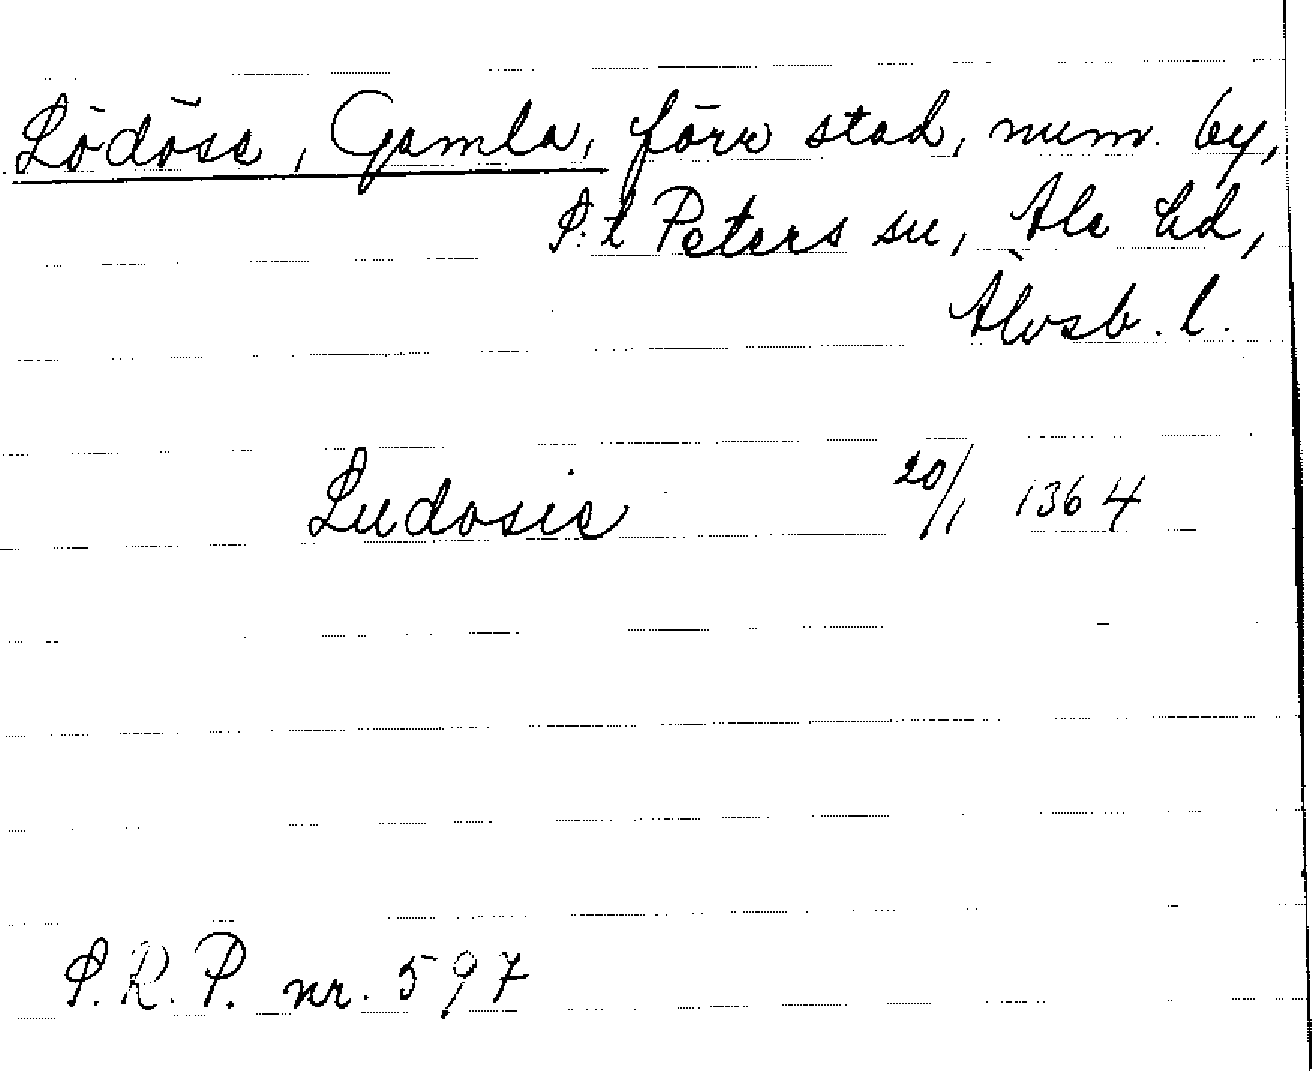 Lödöse, Gamla, förr stad, num. by,
S:t Peters sn, Ale hd,
Älvsb. l.
Ludosie 20/1 1364
S.R.P. nr. 597